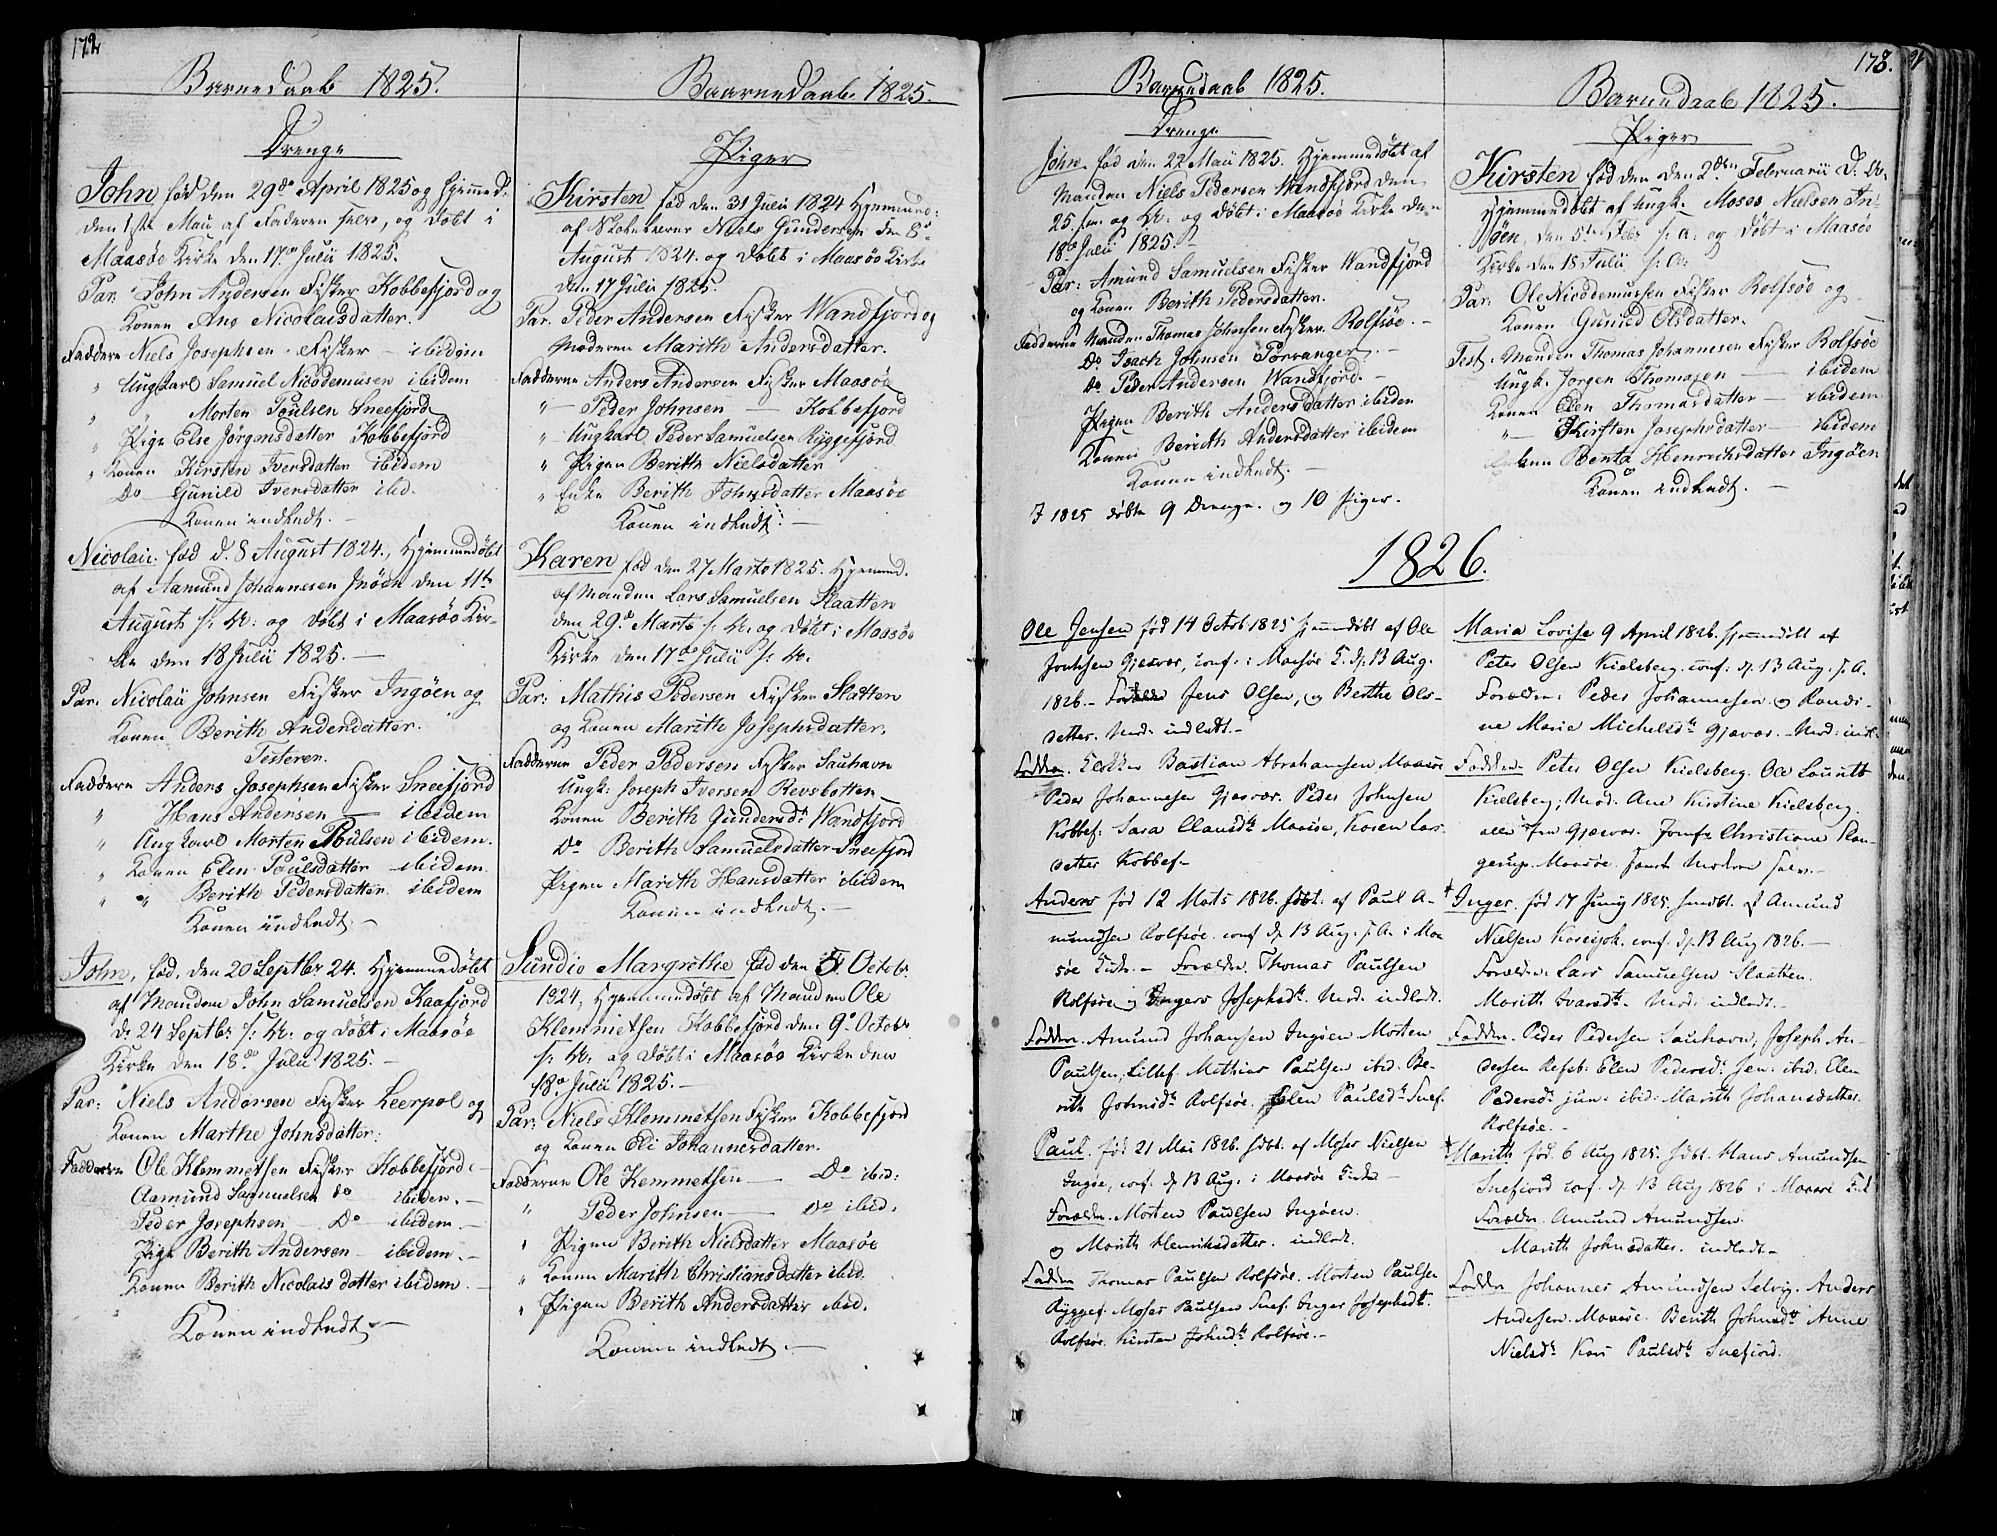 172
Barnedaab 1825.
Drenge
John fød den 29de April 1825 og Hjemmed.
den 1ste Mai af Faderen selv, og døbt i
Maasøe Kirke den 17de Julii 1825.
Par: John Andersen Fisker Kobbefjord og
Konen Ane Nicolaisdatter.
Faddere Niels Josephsen Fisker ibidem
" Ungkarl Samuel Nicodemusen ibidem
" " Morten Poulsen Sneefjord
" Pige Else Jörgensdatter Kobbefjord
" Konen Kirsten Iversdatter ibidem
Do Gunild Iversdatter ibid.
Konen indledt. —
Nicolai fød d. 8 August 1824, Hjemmedøbt
af Aamund Johannesen Inöen den 11te
August s: A: og døbt i Maasøe Kir-
ke den 18 Julii 1825. —
Par: Nicolai Johnsen Fisker Ingöen og
Konen Berith Andersdatter.
Testeren.
Faddere Anders Josephsen Fisker Sneefjord
" Hans Andersen — ibidem
" Ungkarl Morten Poulsen ibidem.
" Konen Elen Paulsdatter ibidem
" " Berith Pedersdatter ibidem
Konen indledt. —
John, fød, den 20 Septbr 24. Hjemmedøbt
af Manden John Samuelsen Kaafjord
d: 24 Septbr s: A: og døbt i Maasøe
Kirke den 18de Julii 1825. —
Par: Niels Andersen Fisker Leerpol og
Konen Marthe Johnsdatter.
Faddere Ole Klemmetsen Fisker Kobbefjord. —
Aamund Samuelsen do ibiden. —
Peder Josephsen — Do — ibidem —
Pige Berith Andersen — ibidem. —
Konen Berith Nicolaisdatter ibidem. —
Konen indledt —
Baarnedaab 1825.
Piger
Kirsten fød den 31 Julii 1824 Hjemmed:
af Skoleholder Niels Gundersen den 8de
August 1824. og døbt i Maasøe Kirke
den 17 Julii 1825.
Par. Peder Andersen Fisker Wandfjord og
Moderen Marith Andersdatter.
Fadderne Anders Andersen Fisker Maasøe
" — Peder Johnsen — Kobbefjord
" Ungkarl Peder Samuelsen Ryggefjord
" Pigen Berith Nielsdatter
" Enke Berith Johnsdatter Maasøe
Konen indledt. —
Karen fød den 27 Marts 1825. Hjemmd.
af Manden Lars Samuelsen Slaatten
den 29de Marts s: A: og døbt i Maasöe
Kirke den 17de Julii s: A:
Par: Mathis Pedersen Fisker Slotten
og Konen Marith Josephsdatter.
Fadderne Peder Pedersen Fisker Sauhavn
Ungk: Joseph Iversen Revsbotten —
Konen Berith Gundersdr Wandfjord
Do Berith Samuelsdatter Sneefjord
Pigen Marith Hansdatter ibidem
Konen indledt. —
Sundio Margrethe fød den 5. Octobr
1824, Hjemmedøbt af Manden Ole
Klemmetsen Kobbefjord den 9de Octobr
s: A: og døbt i Maasøe Kirke den
18de Julii 1825. —
Par: Niels Klemmetsen Fisker Kobbefjord
og Konen Eli Johannesdatter.
Fadderne Ole Kemmetsen — Do ibid:
" Peder Johnsen — do ibid.
" Pigen Berith Nielsdatter Maasöe
" Konen Marith Christiansdatter ibid.
" Pigen Berith Andersdatter ibid.
Konen indledt. —
178.
Barnedaab 1825.
Drenge
John fød den 22 Maii 1825. Hjemmedøbt af
Manden Niels Pedersen Wandfjord den
25. s: A: og døbt i Maasöe Kirke den
18de Julii 1825. —
Par: Amund Samuelsen Fisker Wandfjord
og Konen Berith Pedersdatter.
Fadderne Manden Thomas Johnsen Fisker Rolfsöe. —
Do Isach Johnsen Porsanger. —
Do Peder Andersen Wandfjord. —
Pigen Berith Andersdatter ibiden
Konen Berith Andersdatter ibidem
Konen indledt. —
I 1825 døbte 9 Drenge og 10 Piger.
1826.
Ole Jensen fød 14 Octob: 1825 hjemmedöbt af Ole
Gjæsvær, conf: i Maasöe K. d: 13 Aug.
1826. — Forældre Jens Olsen, og Berthe Ols-
datter. Mod: indledt. —
Faddere. Bastian Abrahamsen Maasöe
Peder Johannesen Gjesvær. Peder Johnsen
Kobbef: Sara Clausdr Maasöe, Karen Lars-
datter Kobbef —
Anders fød 12 Marts 1826. hdöbt. af Paul A-
mundsen Rolfsöe. conf. d: 13 Aug. s. A. i Maa-
söe Kirke. — Forældre. Thomas Paulsen
Rolfsöe og Inger Josephsdr. Mod. indledt.
Faddere. Amund Johansen Ingöen Morten
Paulsen, Lillef. Mathias Paulsen ibid. Be-
rith Johnsdr Rolfsöe. Elen Paulsdr Snef.
Paul. fød 21 Mai 1826. hdbt. af Moses Nielsen
Ingöe, conf. d: 13 Aug. i Maasöe Kirke —
Forældre. Morten Paulsen Ingöen.
og Marith Henriksdatter. indledt.
Faddere Thomas Paulsen Rolfsöe. Morten Paulsen
Ryggef. Moses Paulsen Snef. Inger Josephsdr.
Rolfsöe. Kirsten Johnsdr Rolfsöe. —
Barnedaab 1825.
Piger
Kirsten fød den den 2den Februarii D. Do.
Hjemmedøbt af Ungk. Moses Nielsen In-
göen, den 5te Febr s: a: og døbt i Maasöe
Kirke den 18 Julii s: A:
Par: Ole Nicodemussen Fisker Rolfsøe og
Konen Gunild Olsdatter.
Test. Manden Thomas Johannesen Fisker Rolfsöe
Ungk. Jorgen Thomasen — ibidem
Konen Elen Thomasdatter — ibidem
" — Kirsten Josephsdatter — ibidem
Benta Henrichsdatter Ingöen
Konen indledt. —
Maria Lovise 9 April 1826. hjemmedöbt af
Peter Olsen Kielsberg. conf. d: 13 Aug. s. A.
Forældre: Peder Johannesen og Randi-
ne Marie Michelsdr Gjæsvær. Mod: indl:
Faddere. Peter Olsen Kielsberg. Ole Lauritz
Kielsberg; Mad. Ane Kirstine Kielsberg.
alle fra Gjæsvær. Jomfr Christiane Kan-
gerup Maasöe. samt Moderen selv. —
Inger. fød 17 Junij 1825. hmdbt. af Amund
Nielsen Karasjok. conf. d: 13 Aug 1826. —
Forældre. Lars Samuelsen Slaatten.
Marith Ivarsdr. Mod: indledt.
Faddere. Peder Pedersen Sauhavn, Joseph An-
dersen Refsb: Elen Pedersd: sen: ibid: Elen
Pedersd: jun: ibid: Marith Johansdatter
Rolfsöe. —
Marith fød 6 Aug 1825. hdbt. Hans Amundsen
Snefiord conf. d: 13 Aug 1826 i Maasöe Kirk
Forældre. Amund Amundsen
Marith Johnsdatter. indledt —
Faddere Johannes Amundsen Selvig. Anders
Andersen. Maasöe. Berith Johnsdr Anne
Nielsdr Kari Paulsdr Snefiord.